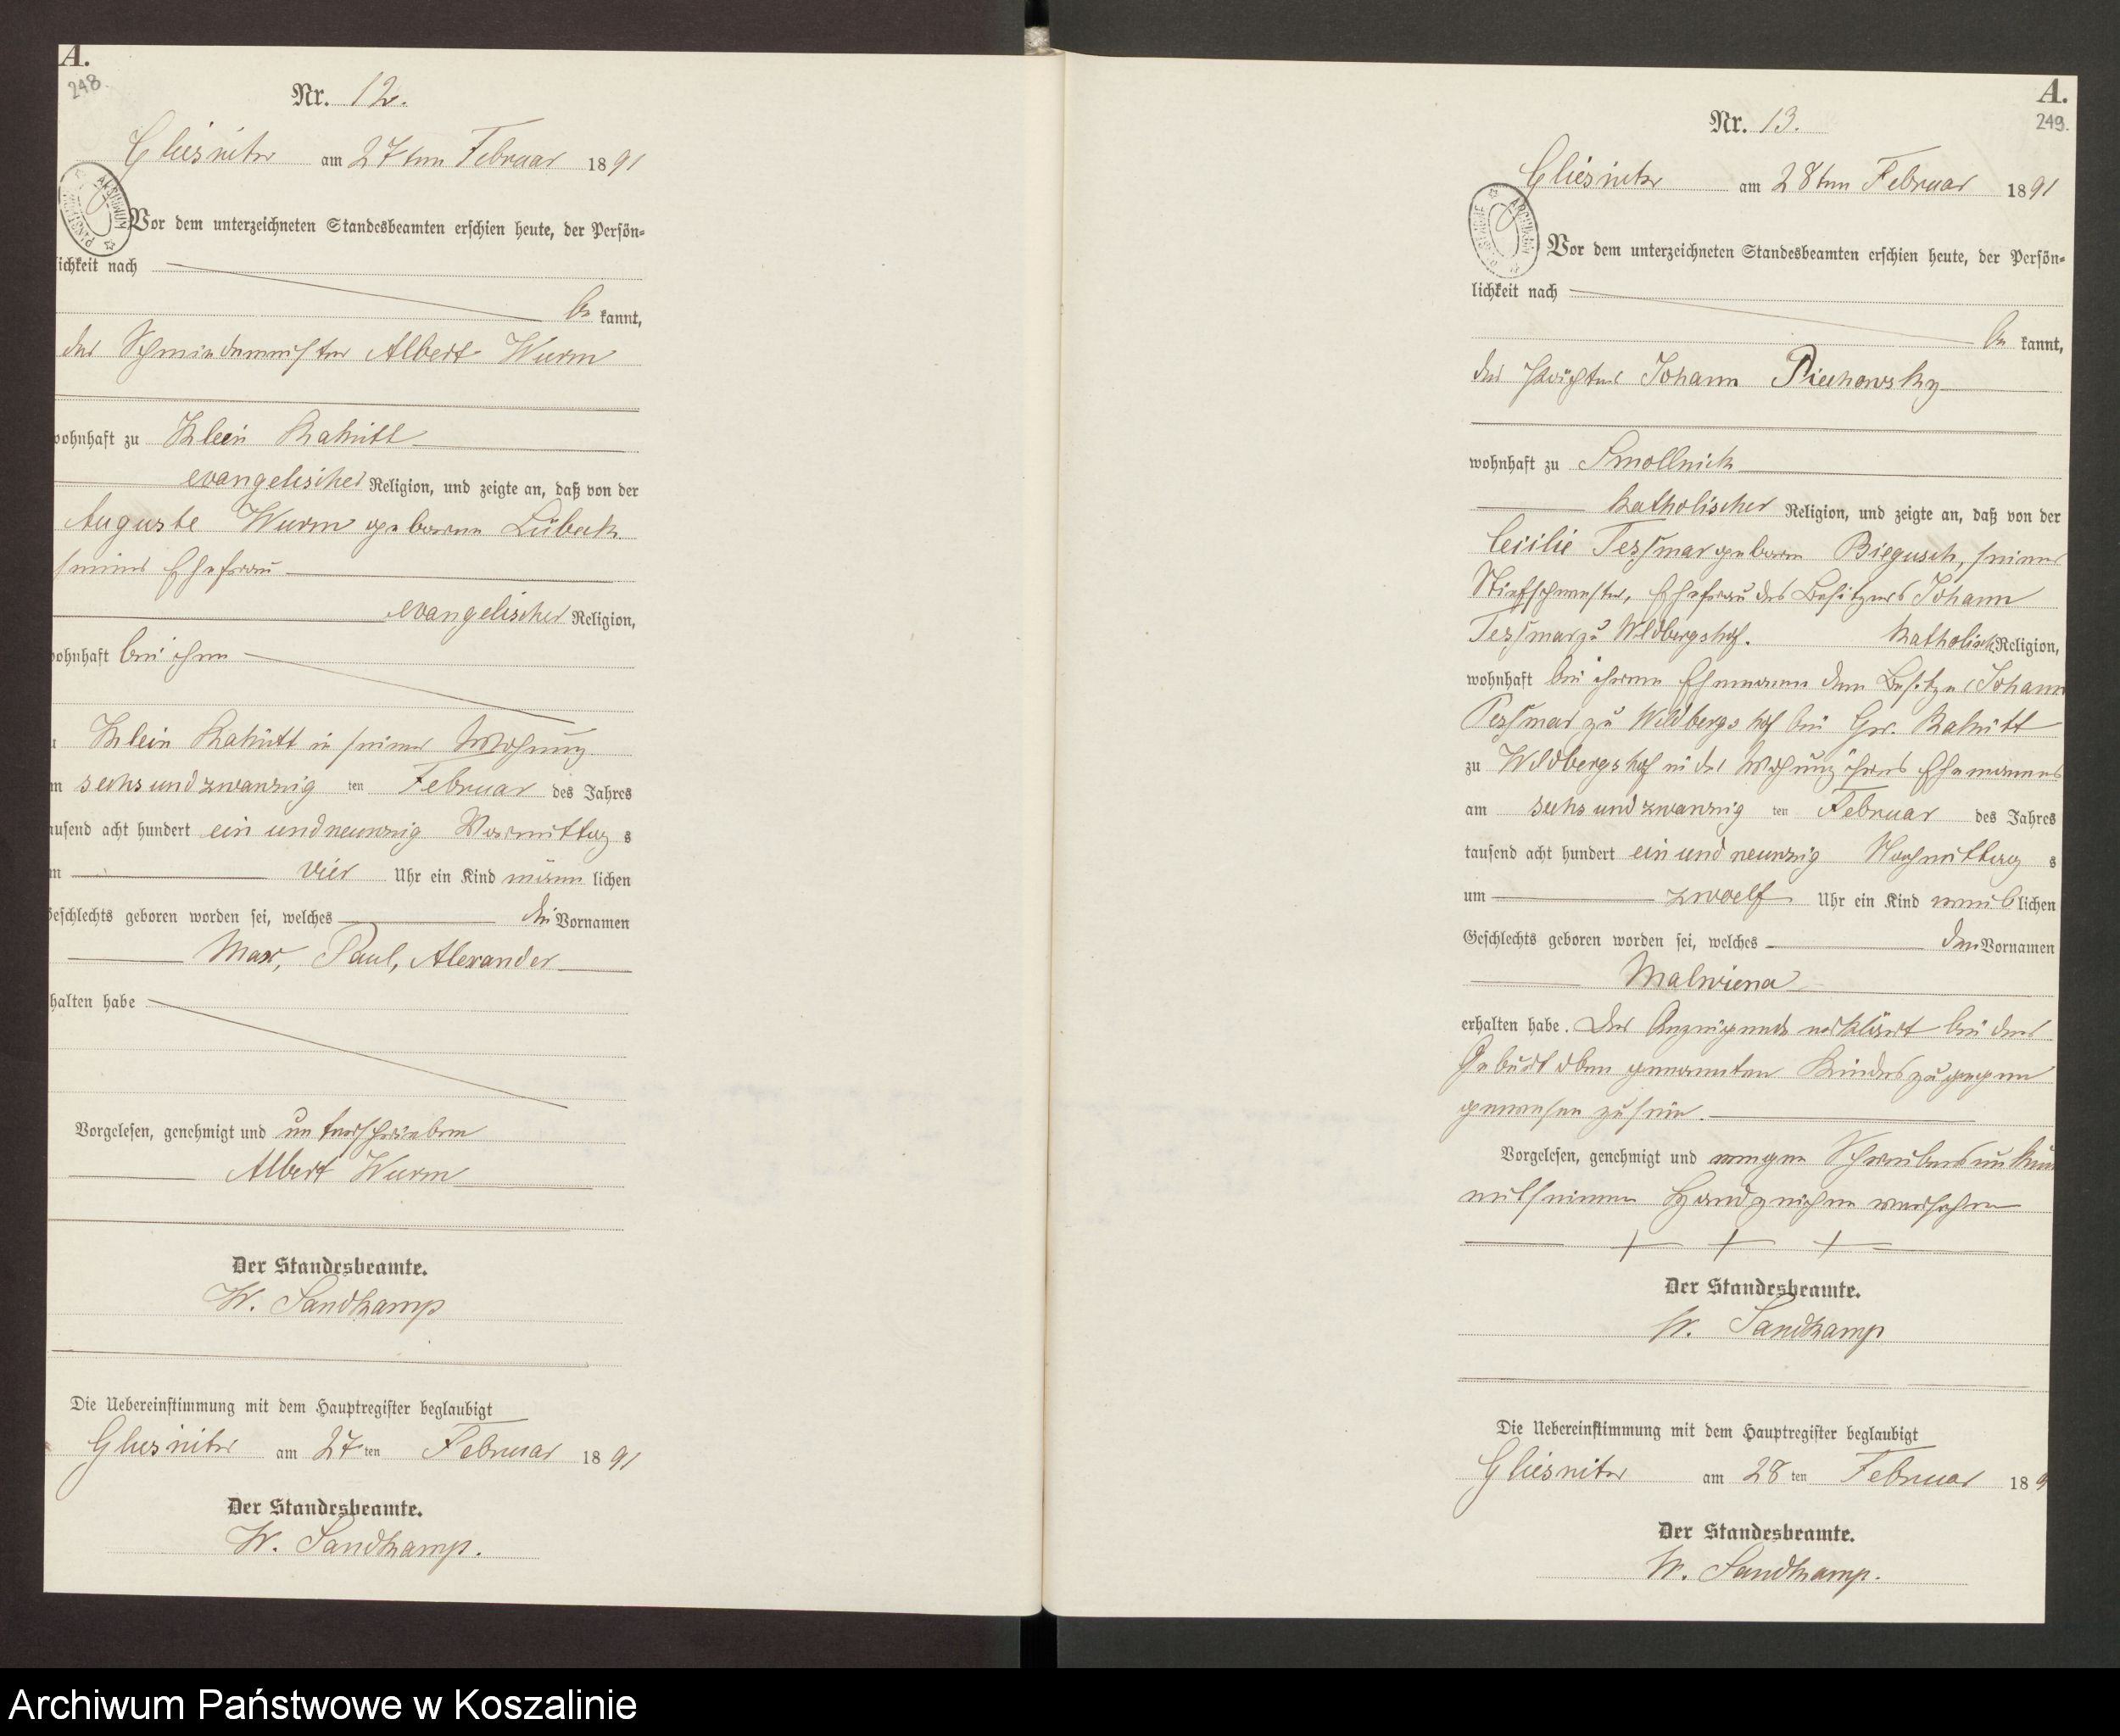 A.
248.
Nr. 12.
Gliesnitz am 27ten Februar 1891
Vor dem unterzeichneten Standesbeamten erschien heute, der Persön-
lichkeit nach
be kannt,
der Schmiedemeister Albert Wurm
wohnhaft zu Klein Rakitt
evangelischer Religion, und zeigte an, daß von der
Auguste Wurm geborene Lübeck
seiner Ehefrau
evangelischer Religion,
wohnhaft bei ihm
Klein Rakitt in seiner Wohnung
sechsundzwanzig ten Februar des Jahres
tausend acht hundert ein und neunzig Vormittag s
vier Uhr ein Kind männ lichen
Geschlechts geboren worden sei, welches die Vornamen
Max, Paul, Alexander
halten habe
Vorgelesen, genehmigt und unterschrieben
Albert Wurm
Der Standesbeamte.
W. Sandkamp
Die Uebereinstimmung mit dem Hauptregister beglaubigt
Gliesnitz am 27ten Februar 1891
Der Standesbeamte.
W. Sandkamp.
A.
249.
Nr. 13.
Gliesnitz am 28ten Februar 1891
Vor dem unterzeichneten Standesbeamten erschien heute, der Persön-
lichkeit nach
be kannt,
der Pächter Johann Piechowsky
wohnhaft zu Smollnick
katholischer Religion, und zeigte an, daß von der
Cecilie Tessmar geborne Biegusch, seiner
Stiefschwester, Ehefrau des Besitzers Johann
Tessmar zu Wildbergshof. katholisch Religion,
wohnhaft bei ihrem Ehemann dem Besitzer Johann
Tessmar zu Wildbergshof bei Gr. Rakitt
zu Wildbergshof in der Wohnung ihres Ehemannes
am sechs und zwanzig ten Februar des Jahres
tausend acht hundert ein und neunzig Nachmittag s
um zwoelf Uhr ein Kind weib lichen
Geschlechts geboren worden sei, welches den Vornamen
Malwiena
erhalten habe. Der Anzeigende erklärt bei der
Geburt oben genannten Kindes zugegen
gewesen zu sein.
Vorgelesen, genehmigt und wegen Schreibensunkun
mit seinem Handzeichen versehen
+ + +
Der Standesbeamte.
W. Sandkamp
Die Uebereinstimmung mit dem Hauptregister beglaubigt
Gliesnitz am 28 ten Februar 189
Der Standesbeamte.
W. Sandkamp.
Archiwum Państwowe w Koszalinie